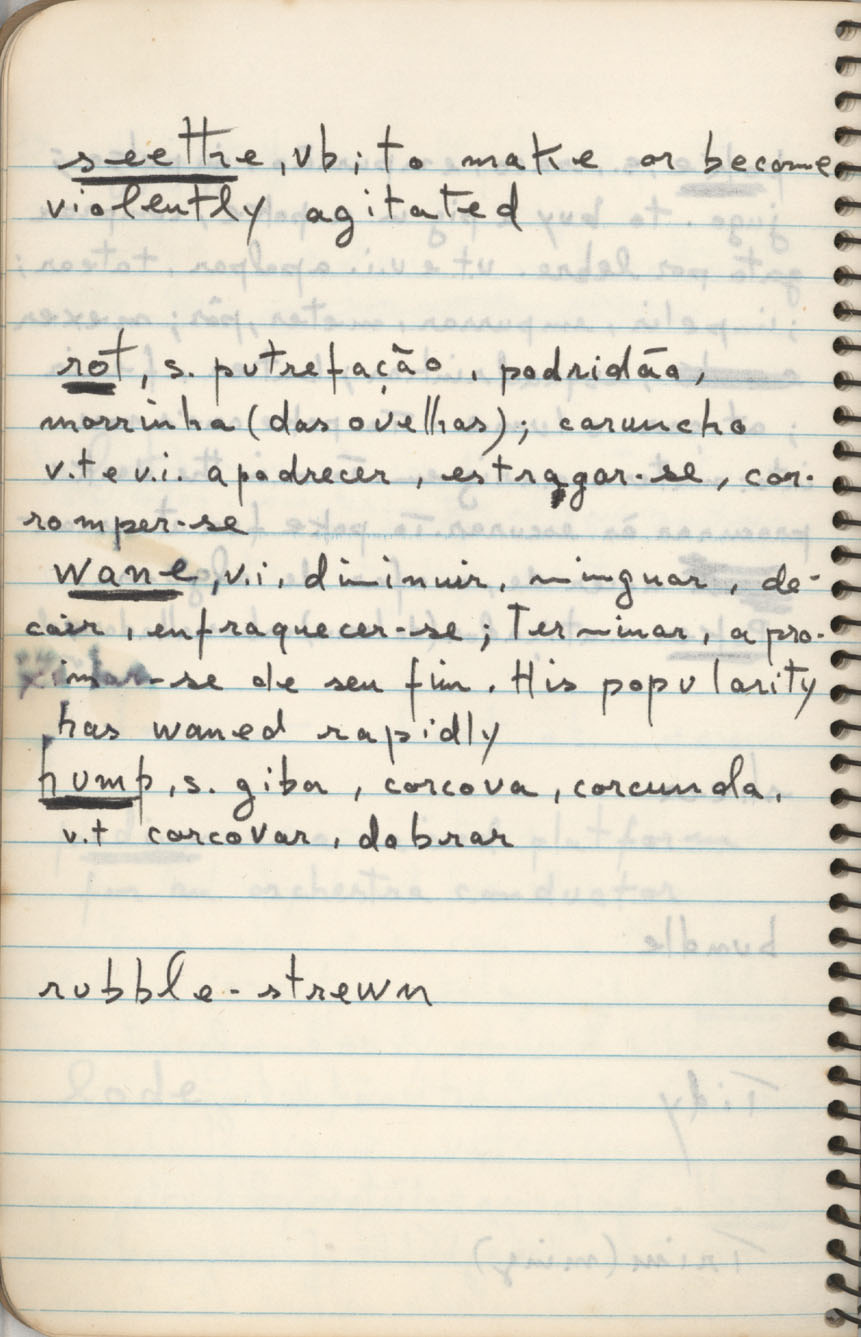 seethe, vb; to make or become
violently agitated
rot, s. putrefação, podridão,
morrinha (das ovelhas); caruncho
v.t e v.i. apodrecer, estragar-se, cor-
romper-se
wane, v.i. diminuir, minguar, de-
cair, enfraquecer-se; Terminar, apro-
ximar-se de seu fim. His popularity
has waned rapidly
hump, s. giba, corcova, corcunda,
v.t corcovar, dobrar
rubble-strewn